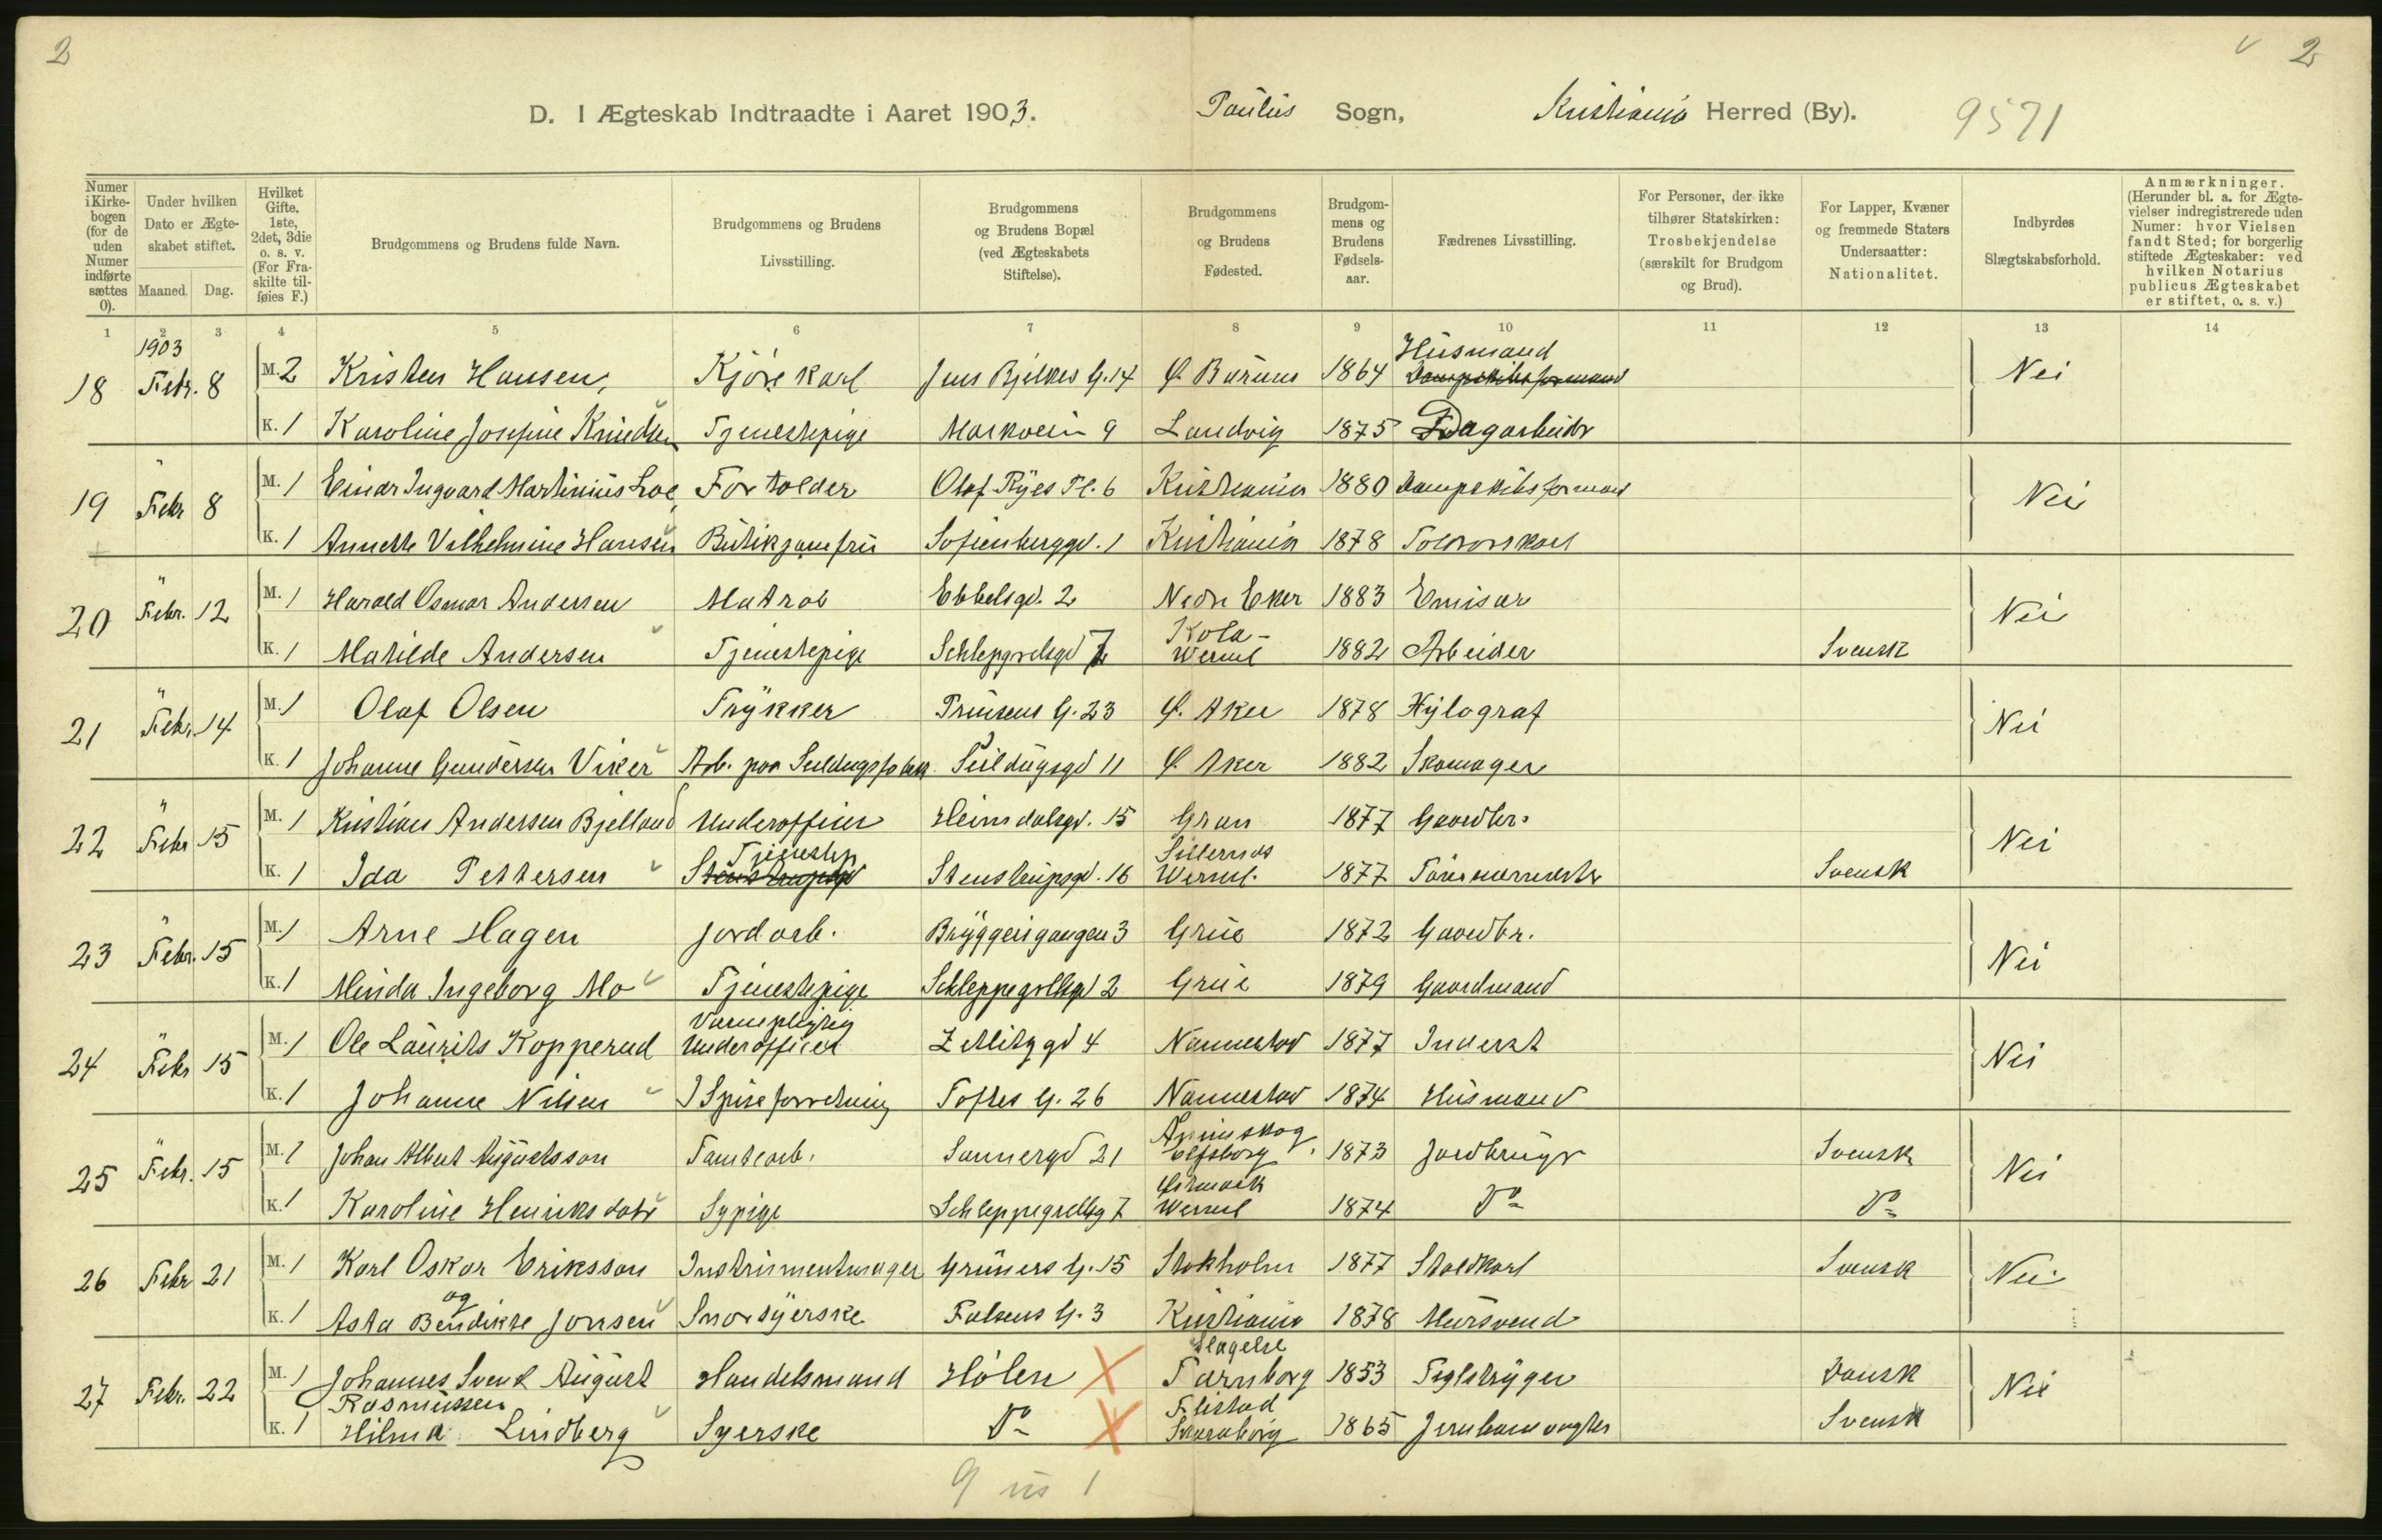 2
2
D. I Ægteskab Indtraadte i Aaret 1903.
Paulus Sogn, Kristiania Herred (By).
9571
Numer i Kirkebogen (for de uden Numer indførte sættes 0).
Under hvilken Dato er Ægteskabet stiftet.
Maaned. Dag.
Hvilket Gifte. 1ste, 2det, 3die o. s. v. (For Fraskilte tilføies F.)
Brudgommens og Brudens fulde Navn.
Brudgommens og Brudens Livsstilling.
Brudgommens og Brudens Bopæl (ved Ægteskabets Stiftelse).
Brudgommens og Brudens Fødested.
Brudgommens og Brudens Fødselsaar.
Fædrenes Livsstilling.
For Personer, der ikke tilhører Statskirken: Trosbekjendelse (særskilt for Brudgom og Brud).
For Lapper, Kvæner og fremmede Staters Undersaatter: Nationalitet.
Indbyrdes Slægtskabsforhold.
Anmærkninger. (Herunder bl. a. for Ægtevielser indregistrerede uden Numer: hvor Vielsen fandt Sted; for borgerlig stiftede Ægteskaber: ved hvilken Notarius publicus Ægteskabet er stiftet, o. s. v.)
1 2 3 4 5 6 7 8 9 10 11 12 13 14
1903
18 Febr. 8 M. 2 Kristen Hansen, Kjørekarl Jens Bjelkes G. 14 Ø. Bærum 1864 Husmand Dampskibsformand Nei
K. 1 Karoline Josefine Knudsen Tjenestepige Markvein 9 Landvig 1875 Dagarbeidr
19 Febr 8 M. 1 Einar Ingvard Martinius Loe, Fortolder Olaf Ryes Pl. 6 Kristiania 1880 Dampskibsformand Nei
K. 1 Annette Vilhelmine Hansen Butikjomfru Sofienberggd. 1 Kristiania 1878 Toldorskarl
20 Febr. 12 M. 1 Harald Osmar Andersen Matros Ebbelsgd. 2 Nedre Eker 1883 Emisær Nei
K. 1 Matilde Andersen Tjenestepige Schlepgrelsgd 7 Kola - Werml 1882 Arbeider Svensk
21 Febr. 14 M. 1 Olaf Olsen Trykker Prinsens G. 23 Ø. Aker 1878 Xylograf Nei
K. 1 Johanne Gundersen Viker Arb. paa Seildugsfabr. Seildugsgd 11 Ø Aker 1882 Skomager
22 Febr 15 M. 1 Kristian Andersen Bjelland Underofficer Heimdalsgd. 15 Gran 1877 Gaardbr. Nei
K. 1 Ida Pettersen Tjenestep Stenstrupsgd. 16 Silleruds Werml. 1877 Tømmermester Svensk
23 Febr. 15 M. 1 Arne Hagen Jordarb. Bryggerigangen 3 Grue 1872 Gaardbr. Nei
K. 1 Minda Ingeborg Mo Tjenestepige Schleppegrellsgd 2 Grue 1879 Gaardmand
24 Febr 15 M. 1 Ole Laurits Kopperud Værnepligtig Underofficer Zetlitzgd 4 Nannestad 1877 Inderst Nei
K. 1 Johanne Nilsen I Spiseforretning Toftes G. 26 Nannestad 1874 Husmand
25 Febr. 15 M. 1 Johan Albert Augustsson Tomtearb. Sannergd 21 Ånimskog Elfsborg 1873 Jordbruger Svensk Nei
K. 1 Karoline Henriksdatr Sypige Schleppegrellsg 7 Holmedal Werml 1874 Do Do
26 Febr 21 M. 1 Karl Oskar Eriksson Instrumentmager Grüners G. 15 Stokholm 1877 Staldkarl Svensk Nei
K. 1 Asta og Bendikte Jonsen Snorsyerske Falsens G. 3 Kristiania 1878 Mursvend
27 Febr. 22 M. 1 Johannes Svend August Rasmussen Handelsmand Hølen Slagelse Tarnborg 1853 Teglstryger Dansk Nei
K. 1 Hilma Lindberg Syerske Do Flistad Skaraborg 1865 Jernbanevogter Svensk
9 us 1